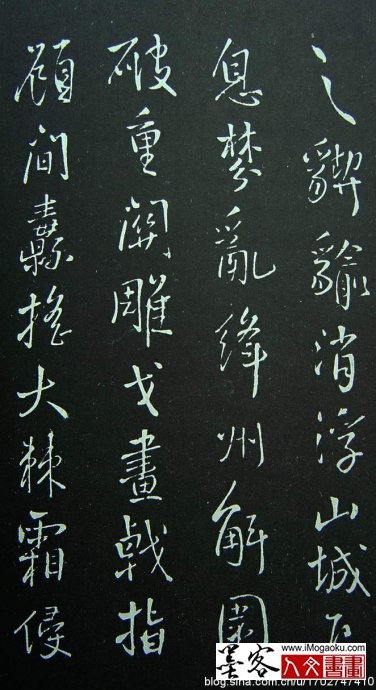 之䝟貐消浮山城
息棼亂絳州解圍
破重關雕戈畫戟指
顧間纛搖大棘霜侵
墨客
www.iMogaoku.com
人文書畫
blog.sina.com.cn/u/1702747410